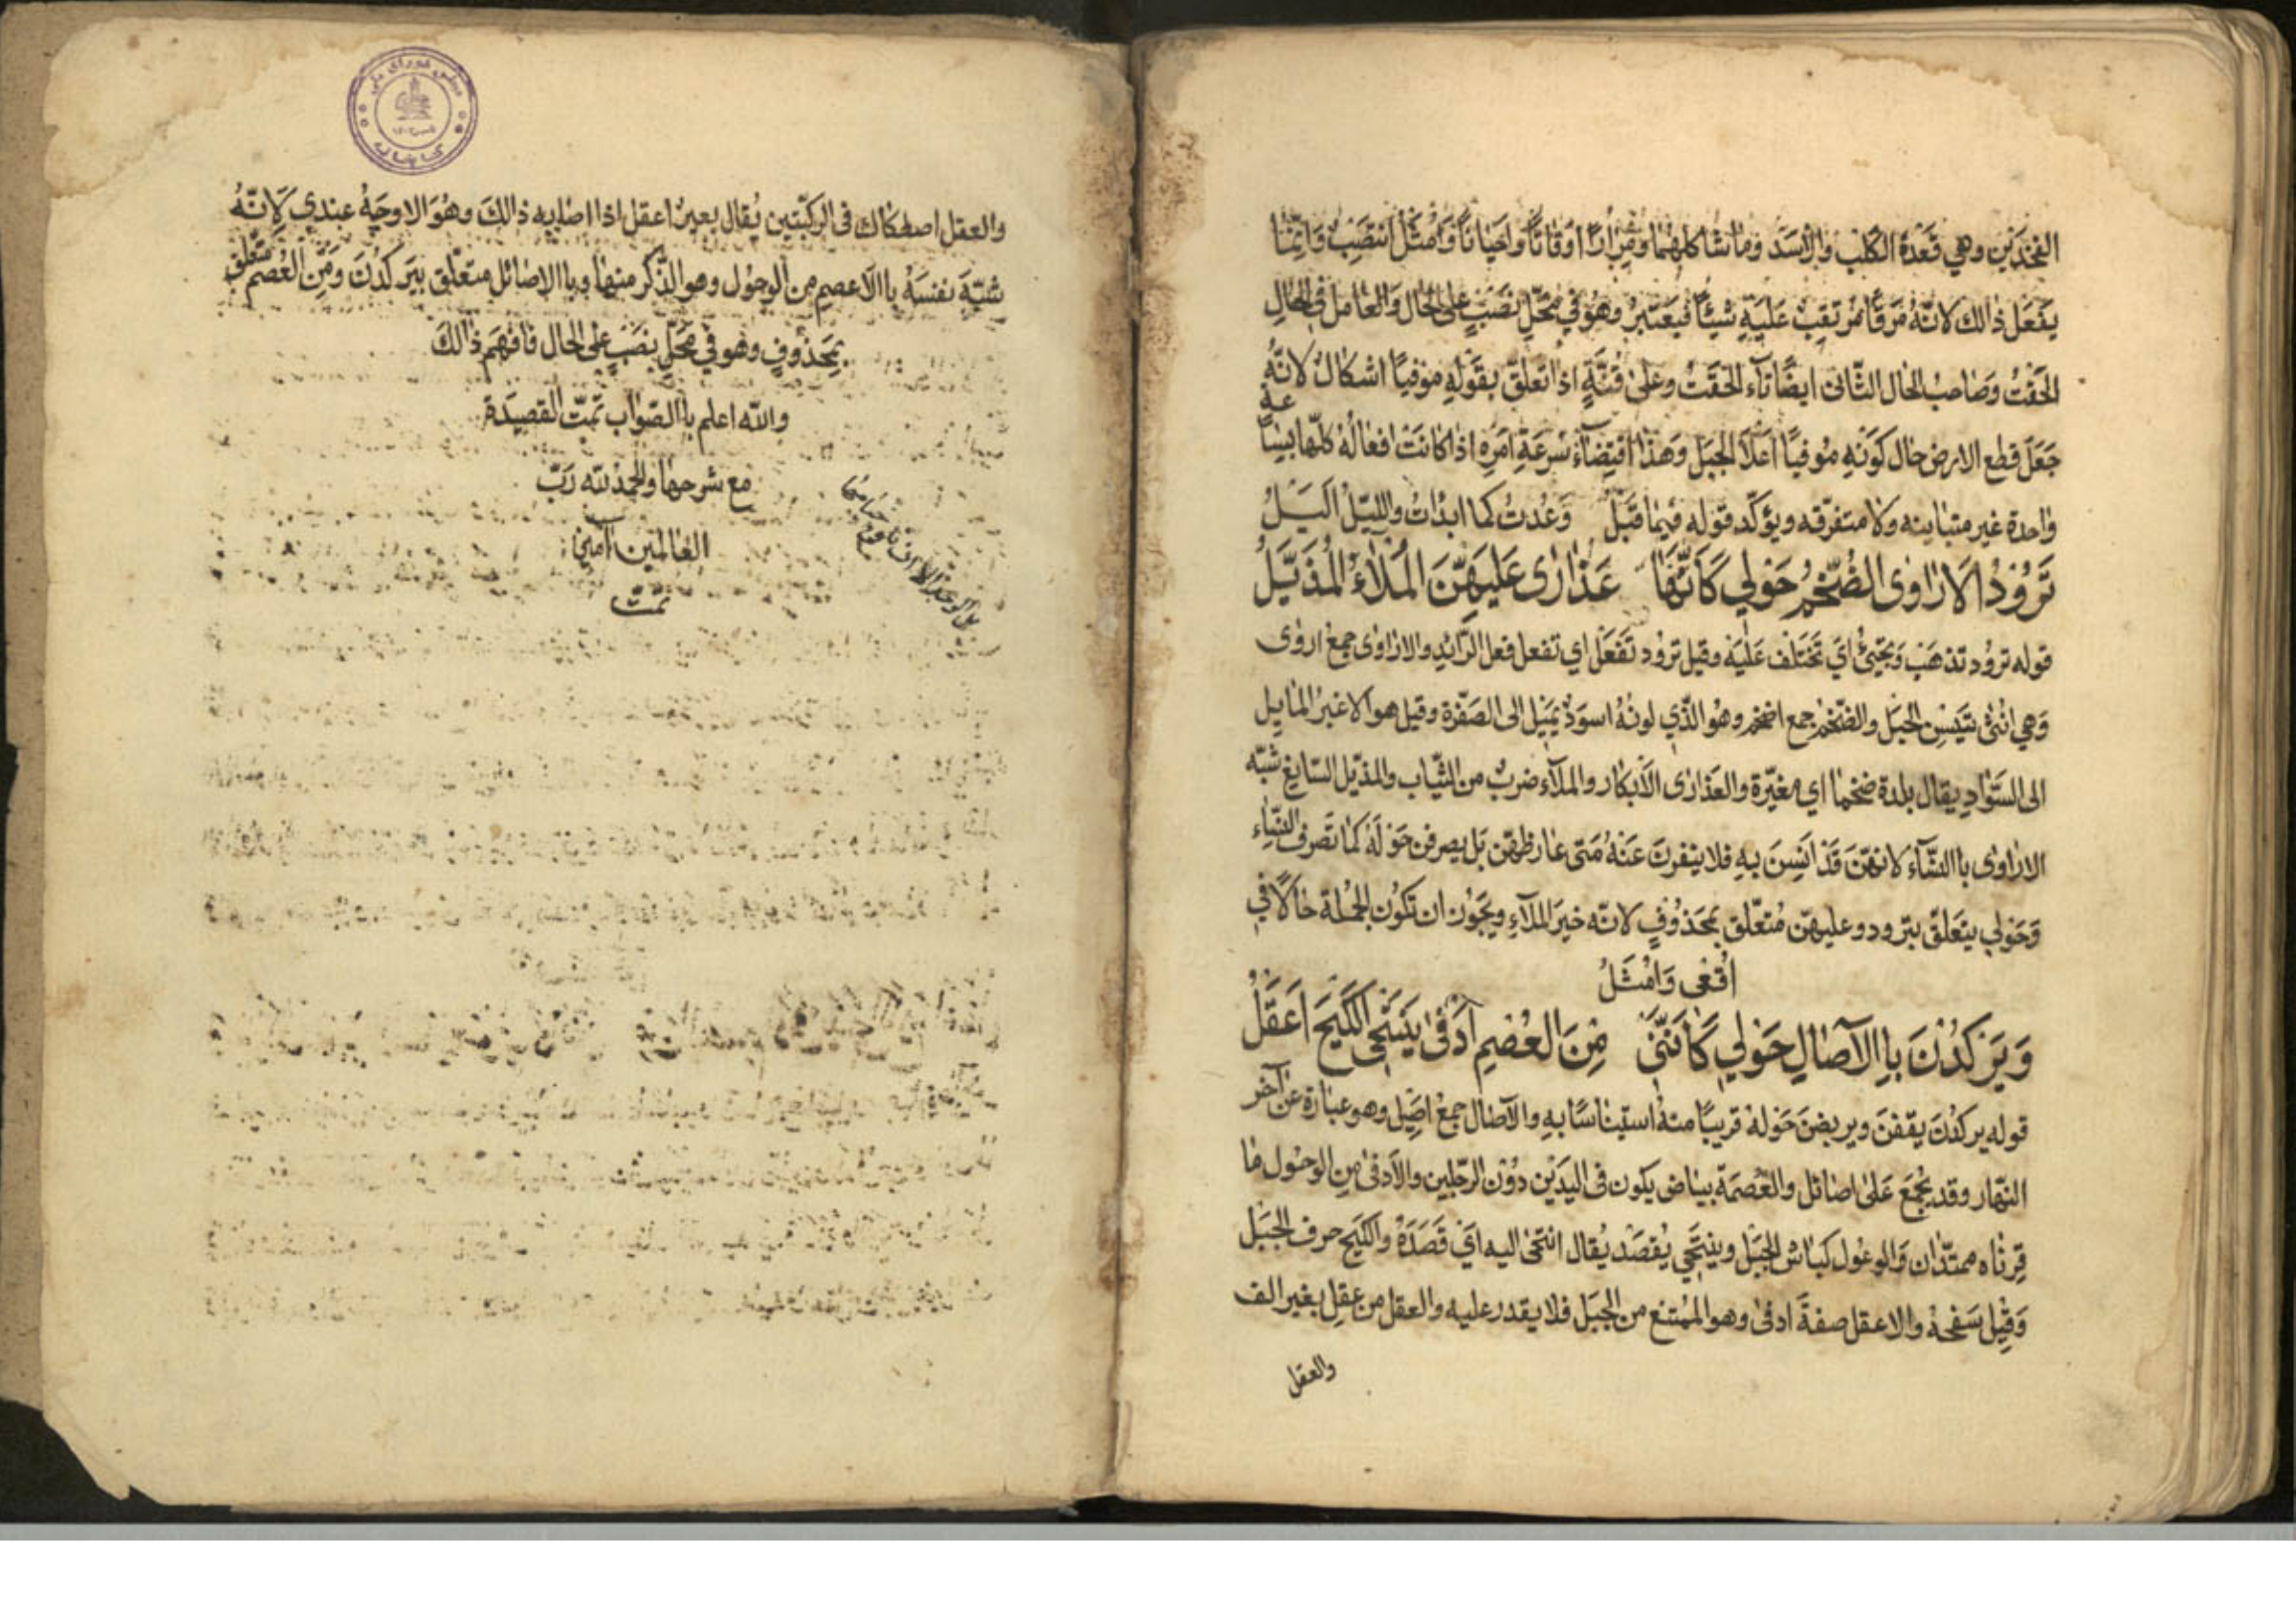 الفخذين وهي قعدة الكلب والاسد وما شاكلهما ومرارًا اوقاتًا واحيانًا وامثل انتصب وانّما
يفعل ذالك لانّه مرقًا مرتقب عليه شيئًا فيعتبر وهو في محلّ نصب على الحال والعامل في الحال
الحقت وصاحب الحال الثّاني ايضًا تاء الحقت وعلى قنّةٍ اذا تعلق بقوله موفيًا اشكال لانّه
جعل قطع الارض حال كونه موفيًا اعلا الجبل وهذا اقتضاء سرعة امره اذا كانت افعاله كلّها
واحدة غير متباينه ولا متفرّقه ويؤكّد قوله فيما قبل وعدت كما ابدات والليل اليل
ترود الاراوى الضّخم حولي كانّها عذارى عليهنّ الملاء المذيّل
قوله ترود تذهب وتجيئ اي تختلف عليه وقيل ترود تفعل اي تفعل فعل الرّائد والاراوى جمع اروى
وهي انثى تيس الجبل والضّخم جمع اضخم وهو الذّي لونه اسود يميل الى الصّفرة وقيل هو الاغبر المايل
الى السّواد يقال بلدة ضخما اي مغبّرة والعذارى الابكار والملآء ضرب من الثّياب والمذيّل السّابغ شبّه
الاراوى باالنسّآء لانهنّ قد انسن به فلا ينفرن عنه متى عارظهنّ بل يصرفن حوله كما تصرف النسّاء
وحولي يتعلّق بترود وعليهنّ متعلّق بمحذوفٍ لانّه خبر الملآء ويجوز ان تكون الجملة حالًا في
اقعى وامثل
ويركدن باالآصال حولي كانّني من العصم ادفى ينتحى الكيح اعقل
قوله يركدن يقفن ويربضن حوله قريبًا منه استيناسًا به والآصال جمع اصيل وهو عبارة عن آخر
النّهار وقد يجمع على اصائل والعصمة بياض يكون في اليدين دون الرّجلين والادفى من الوحول ما
قرناه ممتدّان والوعول كباش الجبل وينتحي يقصد يقال انتحى اليه اي قصده والكيح حرف الجبل
وقيل سفحه والاعقل صفة ادفى وهو الممتنع من الجبل فلا يقدر عليه والعقل من عقل بغير الف
والعقل
والعقل اصطكاك في الركبّتين يقال بعير اعقل اذا اصابه ذالك وهو الاوجه عندي لانّه
شبّه نفسه باالاعصم من الوحول وهو الذّكر منها وباالاصائل متعلّق بيركدن ومن العصم متعلّق
بمحذوفٍ وهو في محلّ نصبٍ على الحال فافهم ذالك
والله اعلم باالصّواب تمّت القصيدة
مع شرحها والحمد لله ربّ
العالمين آمين
تمّت
مجلس شورای ملی
کتابخانه